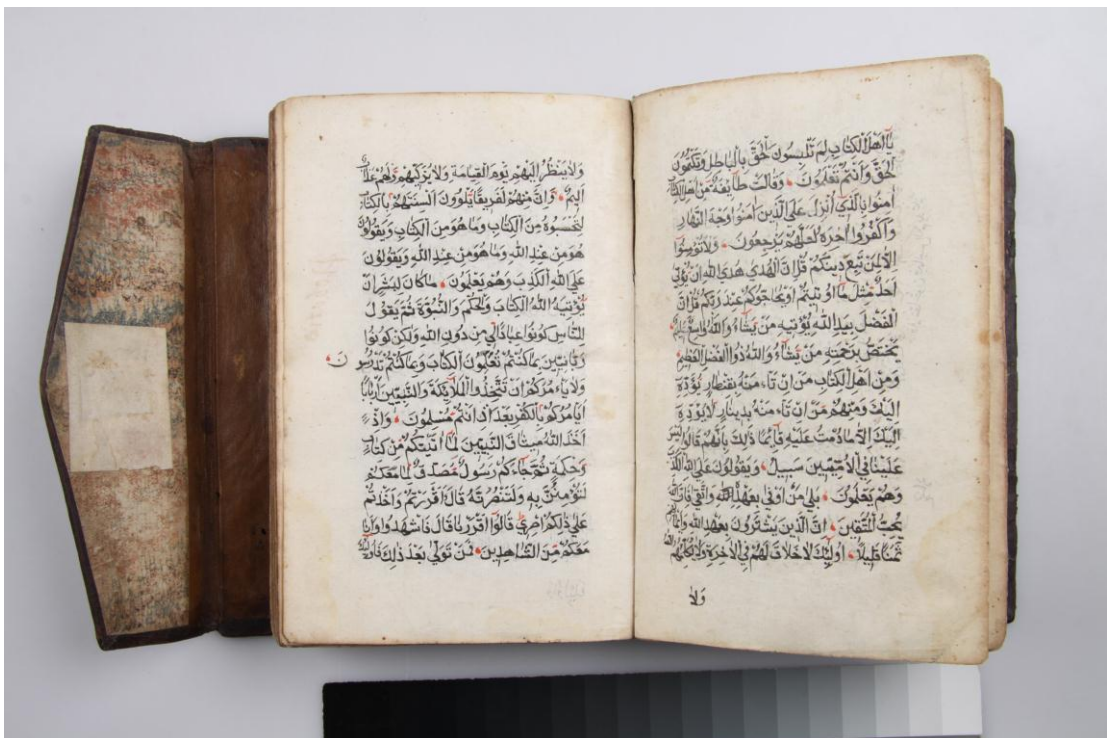 يَا أَهْلَ الْكِتَابِ لِمَ تَلْبِسُونَ الْحَقَّ بِالْبَاطِلِ وَتَكْتُمُونَ
الْحَقَّ وَأَنْتُمْ تَعْلَمُونَ وَقَالَتْ طَائِفَةٌ مِنْ أَهْلِ الْكِتَابِ
آمِنُوا بِالَّذِي أُنْزِلَ عَلَى الَّذِينَ آمَنُوا وَجْهَ النَّهَارِ
وَاكْفُرُوا آخِرَهُ لَعَلَّهُمْ يَرْجِعُونَ وَلَا تُؤْمِنُوا
إِلَّا لِمَنْ تَبِعَ دِينَكُمْ قُلْ إِنَّ الْهُدَى هُدَى اللَّهِ أَنْ يُؤْتَى
أَحَدٌ مِثْلَ مَا أُوتِيتُمْ أَوْ يُحَاجُّوكُمْ عِنْدَ رَبِّكُمْ قُلْ إِنَّ
الْفَضْلَ بِيَدِ اللَّهِ يُؤْتِيهِ مَنْ يَشَاءُ وَاللَّهُ وَاسِعٌ عَلِيمٌ
يَخْتَصُّ بِرَحْمَتِهِ مَنْ يَشَاءُ وَاللَّهُ ذُو الْفَضْلِ الْعَظِيمِ
وَمِنْ أَهْلِ الْكِتَابِ مَنْ إِنْ تَأْمَنْهُ بِقِنْطَارٍ يُؤَدِّهِ
إِلَيْكَ وَمِنْهُمْ مَنْ إِنْ تَأْمَنْهُ بِدِينَارٍ لَا يُؤَدِّهِ
إِلَيْكَ إِلَّا مَا دُمْتَ عَلَيْهِ قَائِمًا ذَلِكَ بِأَنَّهُمْ قَالُوا لَيْسَ
عَلَيْنَا فِي الْأُمِّيِّينَ سَبِيلٌ وَيَقُولُونَ عَلَى اللَّهِ الْكَذِبَ
وَهُمْ يَعْلَمُونَ بَلَى مَنْ أَوْفَى بِعَهْدِهِ وَاتَّقَى فَإِنَّ اللَّهَ
يُحِبُّ الْمُتَّقِينَ إِنَّ الَّذِينَ يَشْتَرُونَ بِعَهْدِ اللَّهِ وَأَيْمَانِهِمْ
ثَمَنًا قَلِيلًا أُولَئِكَ لَا خَلَاقَ لَهُمْ فِي الْآخِرَةِ وَلَا يُكَلِّمُهُمُ اللَّهُ
وَلَا
وَلَا يَنْظُرُ إِلَيْهِمْ يَوْمَ الْقِيَامَةِ وَلَا يُزَكِّيهِمْ وَلَهُمْ عَذَابٌ
أَلِيمٌ وَإِنَّ مِنْهُمْ لَفَرِيقًا يَلْوُونَ أَلْسِنَتَهُمْ بِالْكِتَابِ
لِتَحْسَبُوهُ مِنَ الْكِتَابِ وَمَا هُوَ مِنَ الْكِتَابِ وَيَقُولُونَ
هُوَ مِنْ عِنْدِ اللَّهِ وَمَا هُوَ مِنْ عِنْدِ اللَّهِ وَيَقُولُونَ
عَلَى اللَّهِ الْكَذِبَ وَهُمْ يَعْلَمُونَ مَا كَانَ لِبَشَرٍ أَنْ
يُؤْتِيَهُ اللَّهُ الْكِتَابَ وَالْحُكْمَ وَالنُّبُوَّةَ ثُمَّ يَقُولَ
لِلنَّاسِ كُونُوا عِبَادًا لِي مِنْ دُونِ اللَّهِ وَلَكِنْ كُونُوا
رَبَّانِيِّينَ بِمَا كُنْتُمْ تُعَلِّمُونَ الْكِتَابَ وَبِمَا كُنْتُمْ تَدْرُسُونَ
وَلَا يَأْمُرَكُمْ أَنْ تَتَّخِذُوا الْمَلَائِكَةَ وَالنَّبِيِّينَ أَرْبَابًا
أَيَأْمُرُكُمْ بِالْكُفْرِ بَعْدَ إِذْ أَنْتُمْ مُسْلِمُونَ وَإِذْ
أَخَذَ اللَّهُ مِيثَاقَ النَّبِيِّينَ لَمَا آتَيْتُكُمْ مِنْ كِتَابٍ
وَحِكْمَةٍ ثُمَّ جَاءَكُمْ رَسُولٌ مُصَدِّقٌ لِمَا مَعَكُمْ
لَتُؤْمِنُنَّ بِهِ وَلَتَنْصُرُنَّهُ قَالَ أَأَقْرَرْتُمْ وَأَخَذْتُمْ
عَلَى ذَلِكُمْ إِصْرِي قَالُوا أَقْرَرْنَا قَالَ فَاشْهَدُوا وَأَنَا
مَعَكُمْ مِنَ الشَّاهِدِينَ فَمَنْ تَوَلَّى بَعْدَ ذَلِكَ فَأُولَئِكَ